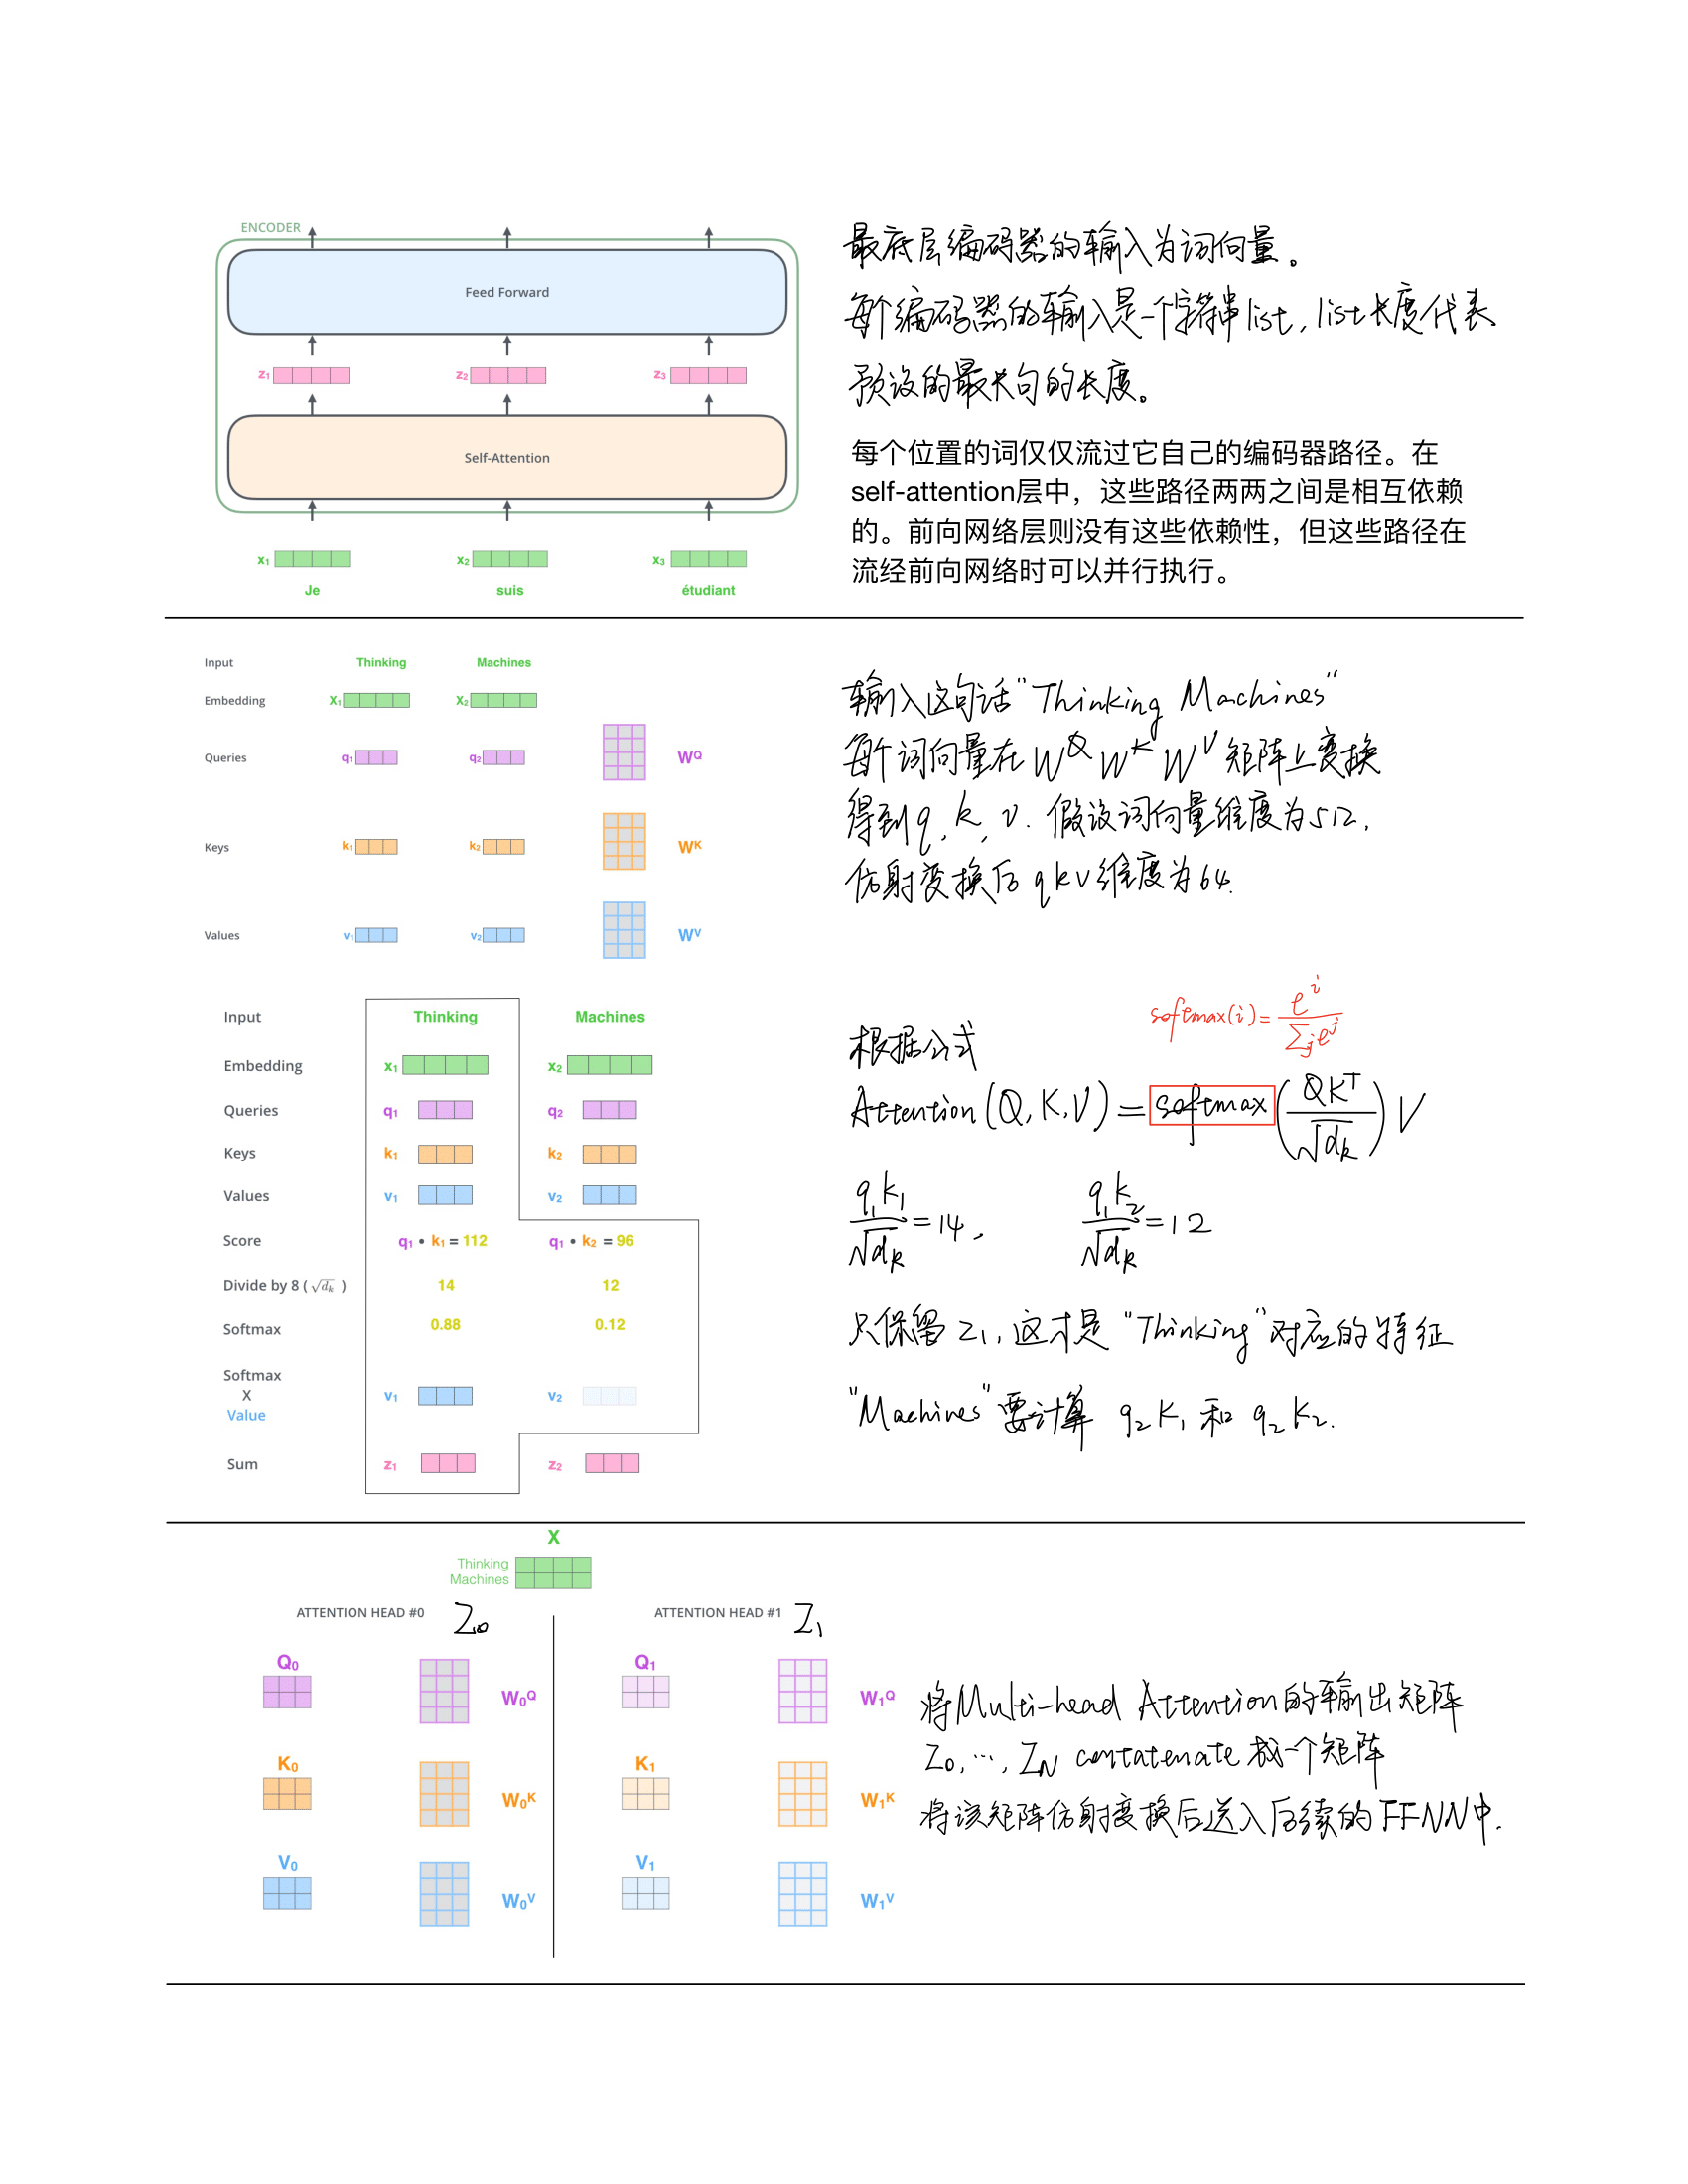 ENCODER
Feed Forward
z₁ z₂ z₃
Self-Attention
x₁ x₂ x₃
Je suis étudiant
最底层编码器的输入为词向量。
每个编码器的输入是一个字符串list,list长度代表
预设的最大句的长度。
每个位置的词仅仅流过它自己的编码器路径。在
self-attention层中，这些路径两两之间是相互依赖
的。前向网络层则没有这些依赖性，但这些路径在
流经前向网络时可以并行执行。
Input Thinking Machines
Embedding X₁ X₂
Queries q₁ q₂ W^Q
Keys k₁ k₂ W^K
Values v₁ v₂ W^V
输入这句话“Thinking Machines”
每个词向量在 W^Q W^K W^V 矩阵上变换
得到q, k, v. 假设词向量维度为512.
仿射变换后 qkv维度为64.
Input Thinking Machines
Embedding x₁ x₂
Queries q₁ q₂
Keys k₁ k₂
Values v₁ v₂
Score q₁ • k₁ = 112 q₁ • k₂ = 96
Divide by 8 ( √d_k ) 14 12
Softmax 0.88 0.12
Softmax
X
Value v₁ v₂
Sum z₁ z₂
softmax(i) = e^i / Σ_j e^j
根据公式
Attention(Q, K, V) = softmax(QK^T / √d_k) V
q₁k₁ / √d_k = 14, q₁k₂ / √d_k = 12
只保留 z₁, 这才是“Thinking”对应的特征
“Machines”要计算 q₂k₁ 和 q₂k₂.
X
Thinking
Machines
ATTENTION HEAD #0 Z₀ ATTENTION HEAD #1 Z₁
Q₀ Q₁
W₀^Q W₁^Q
K₀ K₁
W₀^K W₁^K
V₀ V₁
W₀^V W₁^V
将Multi-head Attention的输出矩阵
Z₀, ⋯, Z_N contatenate 成一个矩阵
将该矩阵仿射变换后送入后续的FFNN中.